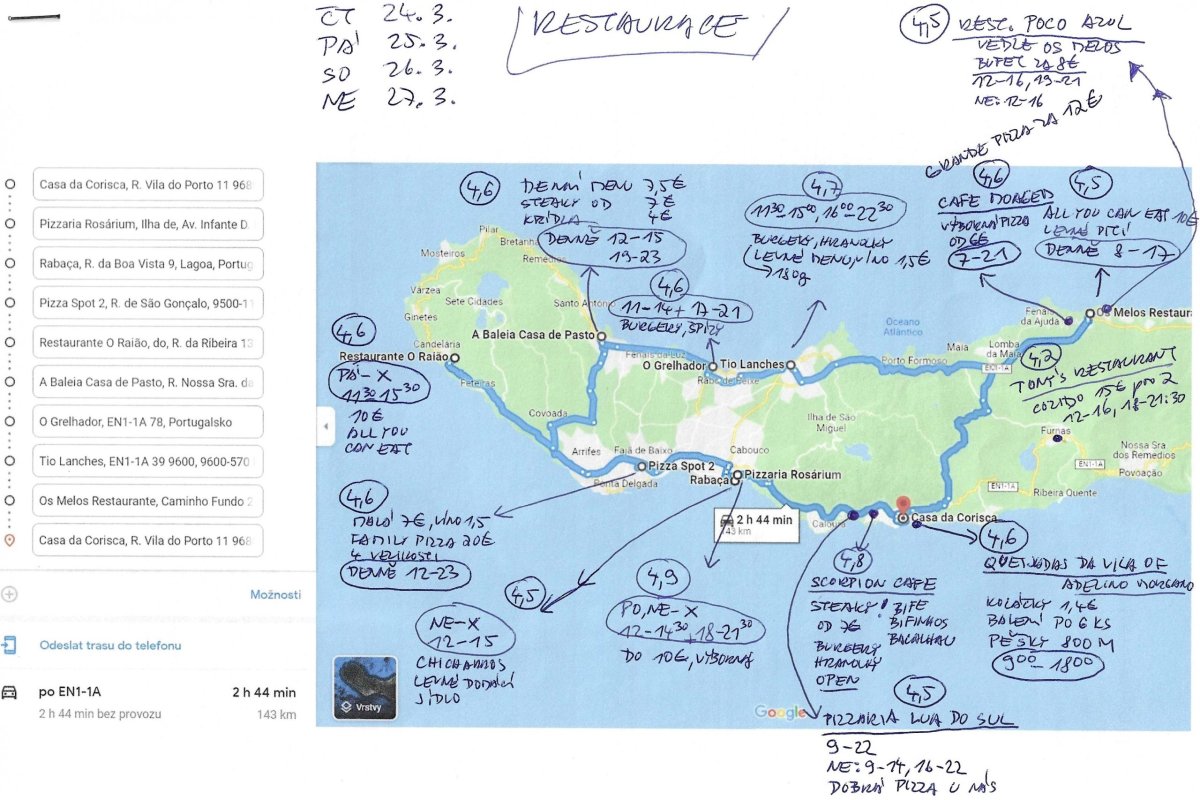 ČT 24.3.
PÁ 25.3.
SO 26.3.
NE 27.3.
RESTAURACE
4,5 REST. POCO AZUL
VEDLE OS MELOS
BUFET ZA 8€
12-16, 19-21
NE: 12-16
GRANDE PIZZA ZA 12€
Casa da Corisca, R. Vila do Porto 11 968
Pizzaria Rosárium, Ilha de, Av. Infante D.
Rabaça, R. da Boa Vista 9, Lagoa, Portug
Pizza Spot 2, R. de São Gonçalo, 9500-1
Restaurante O Raião, do, R. da Ribeira 13
A Baleia Casa de Pasto, R. Nossa Sra. da
O Grelhador, EN1-1A 78, Portugalsko
Tio Lanches, EN1-1A 39 9600, 9600-570
Os Melos Restaurante, Caminho Fundo 2
Casa da Corisca, R. Vila do Porto 11 968
Možnosti
Odeslat trasu do telefonu
po EN1-1A
2 h 44 min
2 h 44 min bez provozu
143 km
4,6
DENNÍ MENU 7,5€
STEAKY OD 7€
KŘÍDLA 4€
DENNĚ 12-15
19-23
4,7
11³⁰-15⁰⁰, 16⁰⁰-22³⁰
BURGERY, HRANOLKY
LEVNÉ MENU, VÍNO 1,5€
180g
4,6
CAFE MORGED
VÝBORNÁ PIZZA
OD 6€
7-21
4,5
ALL YOU CAN EAT 10€
LEVNÉ PITÍ
DENNĚ 8-17
4,6
11-14 + 17-21
BURGERY, ŠPÍZY
4,6
PÁ-X
11³⁰-15³⁰
10€
ALL YOU
CAN EAT
4,2
TONY'S RESTAURANT
COZIDO 15€ pro 2
12-16, 18-21:30
Pilar
Bretanha
Remédios
Mosteiros
Várzea
Sete Cidades
Ginetes
Santo António
Candelária
A Baleia Casa de Pasto
Restaurante O Raião
Feteiras
Fenais da Luz
O Grelhador
Rabo de Peixe
Tio Lanches
Oceano
Atlântico
Porto Formoso
Maia
Lomba
da Maia
Fenais
da Ajuda
Os Melos Restaura
EN1-1A
Covoada
Arrifes
Fajã de Baixo
Ponta Delgada
Pizza Spot 2
Rabaça
Cabouco
Pizzaria Rosárium
Ilha de São
Miguel
Furnas
Nossa Sra
dos Remedios
Povoação
EN1-1A
EN1-1A
Ribeira Quente
Caloura
Casa da Corisca
2 h 44 min
143 km
4,6
MALÁ 7€, VÍNO 1,5
FAMILY PIZZA 20€
4 VELIKOSTI
DENNĚ 12-23
4,5
NE-X
12-15
CHICHARROS
LEVNÉ DOMÁCÍ
JÍDLO
4,9
PO, NE-X
12-14³⁰ + 18-21³⁰
DO 10€, VÝBORNÁ
4,8
SCORPION CAFE
STEAKY! BIFE
OD 7€ BIFINHOS
BURGERY BACALHAU
HRANOLKY
OPEN
4,6
QUEIJADAS DA VILA OF
ADELINO MORGADO
KOLÁČKY 1,4€
BALENÍ PO 6 KS
PĚŠKY 800 M
9⁰⁰-18⁰⁰
4,5
PIZZARIA LUA DO SUL
9-22
NE: 9-14, 16-22
DOBRÁ PIZZA U NÁS
Vrstvy
Google